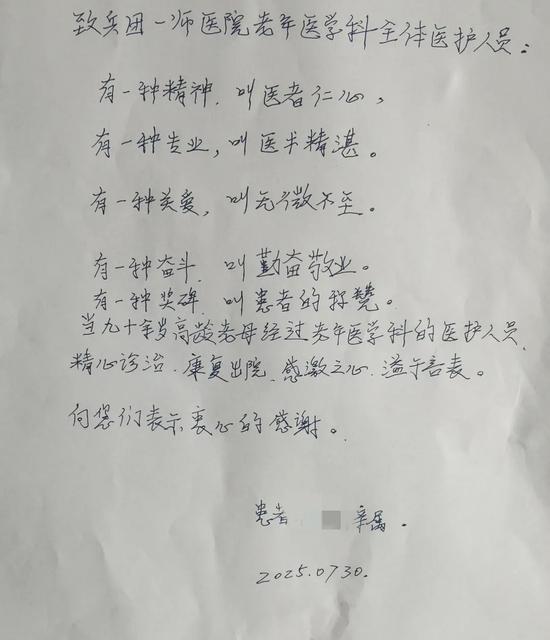 致兵团一师医院老年医学科全体医护人员：
有一种精神，叫医者仁心，
有一种专业，叫医术精湛。
有一种关爱，叫无微不至。
有一种奋斗，叫勤奋敬业。
有一种奖碑，叫患者的称赞。
当九十余岁高龄老母经过老年医学科的医护人员，
精心诊治．康复出院，感激之心，溢于言表。
向您们表示衷心的感谢。
患者 亲属．
2025.0730.